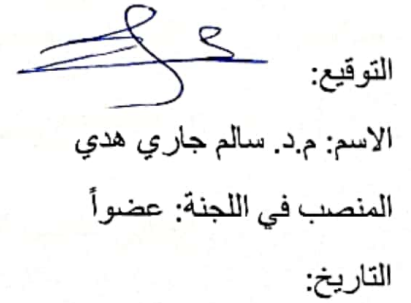 التوقيع:
الاسم: م.د. سالم جاري هدي
المنصب في اللجنة: عضواً
التاريخ: